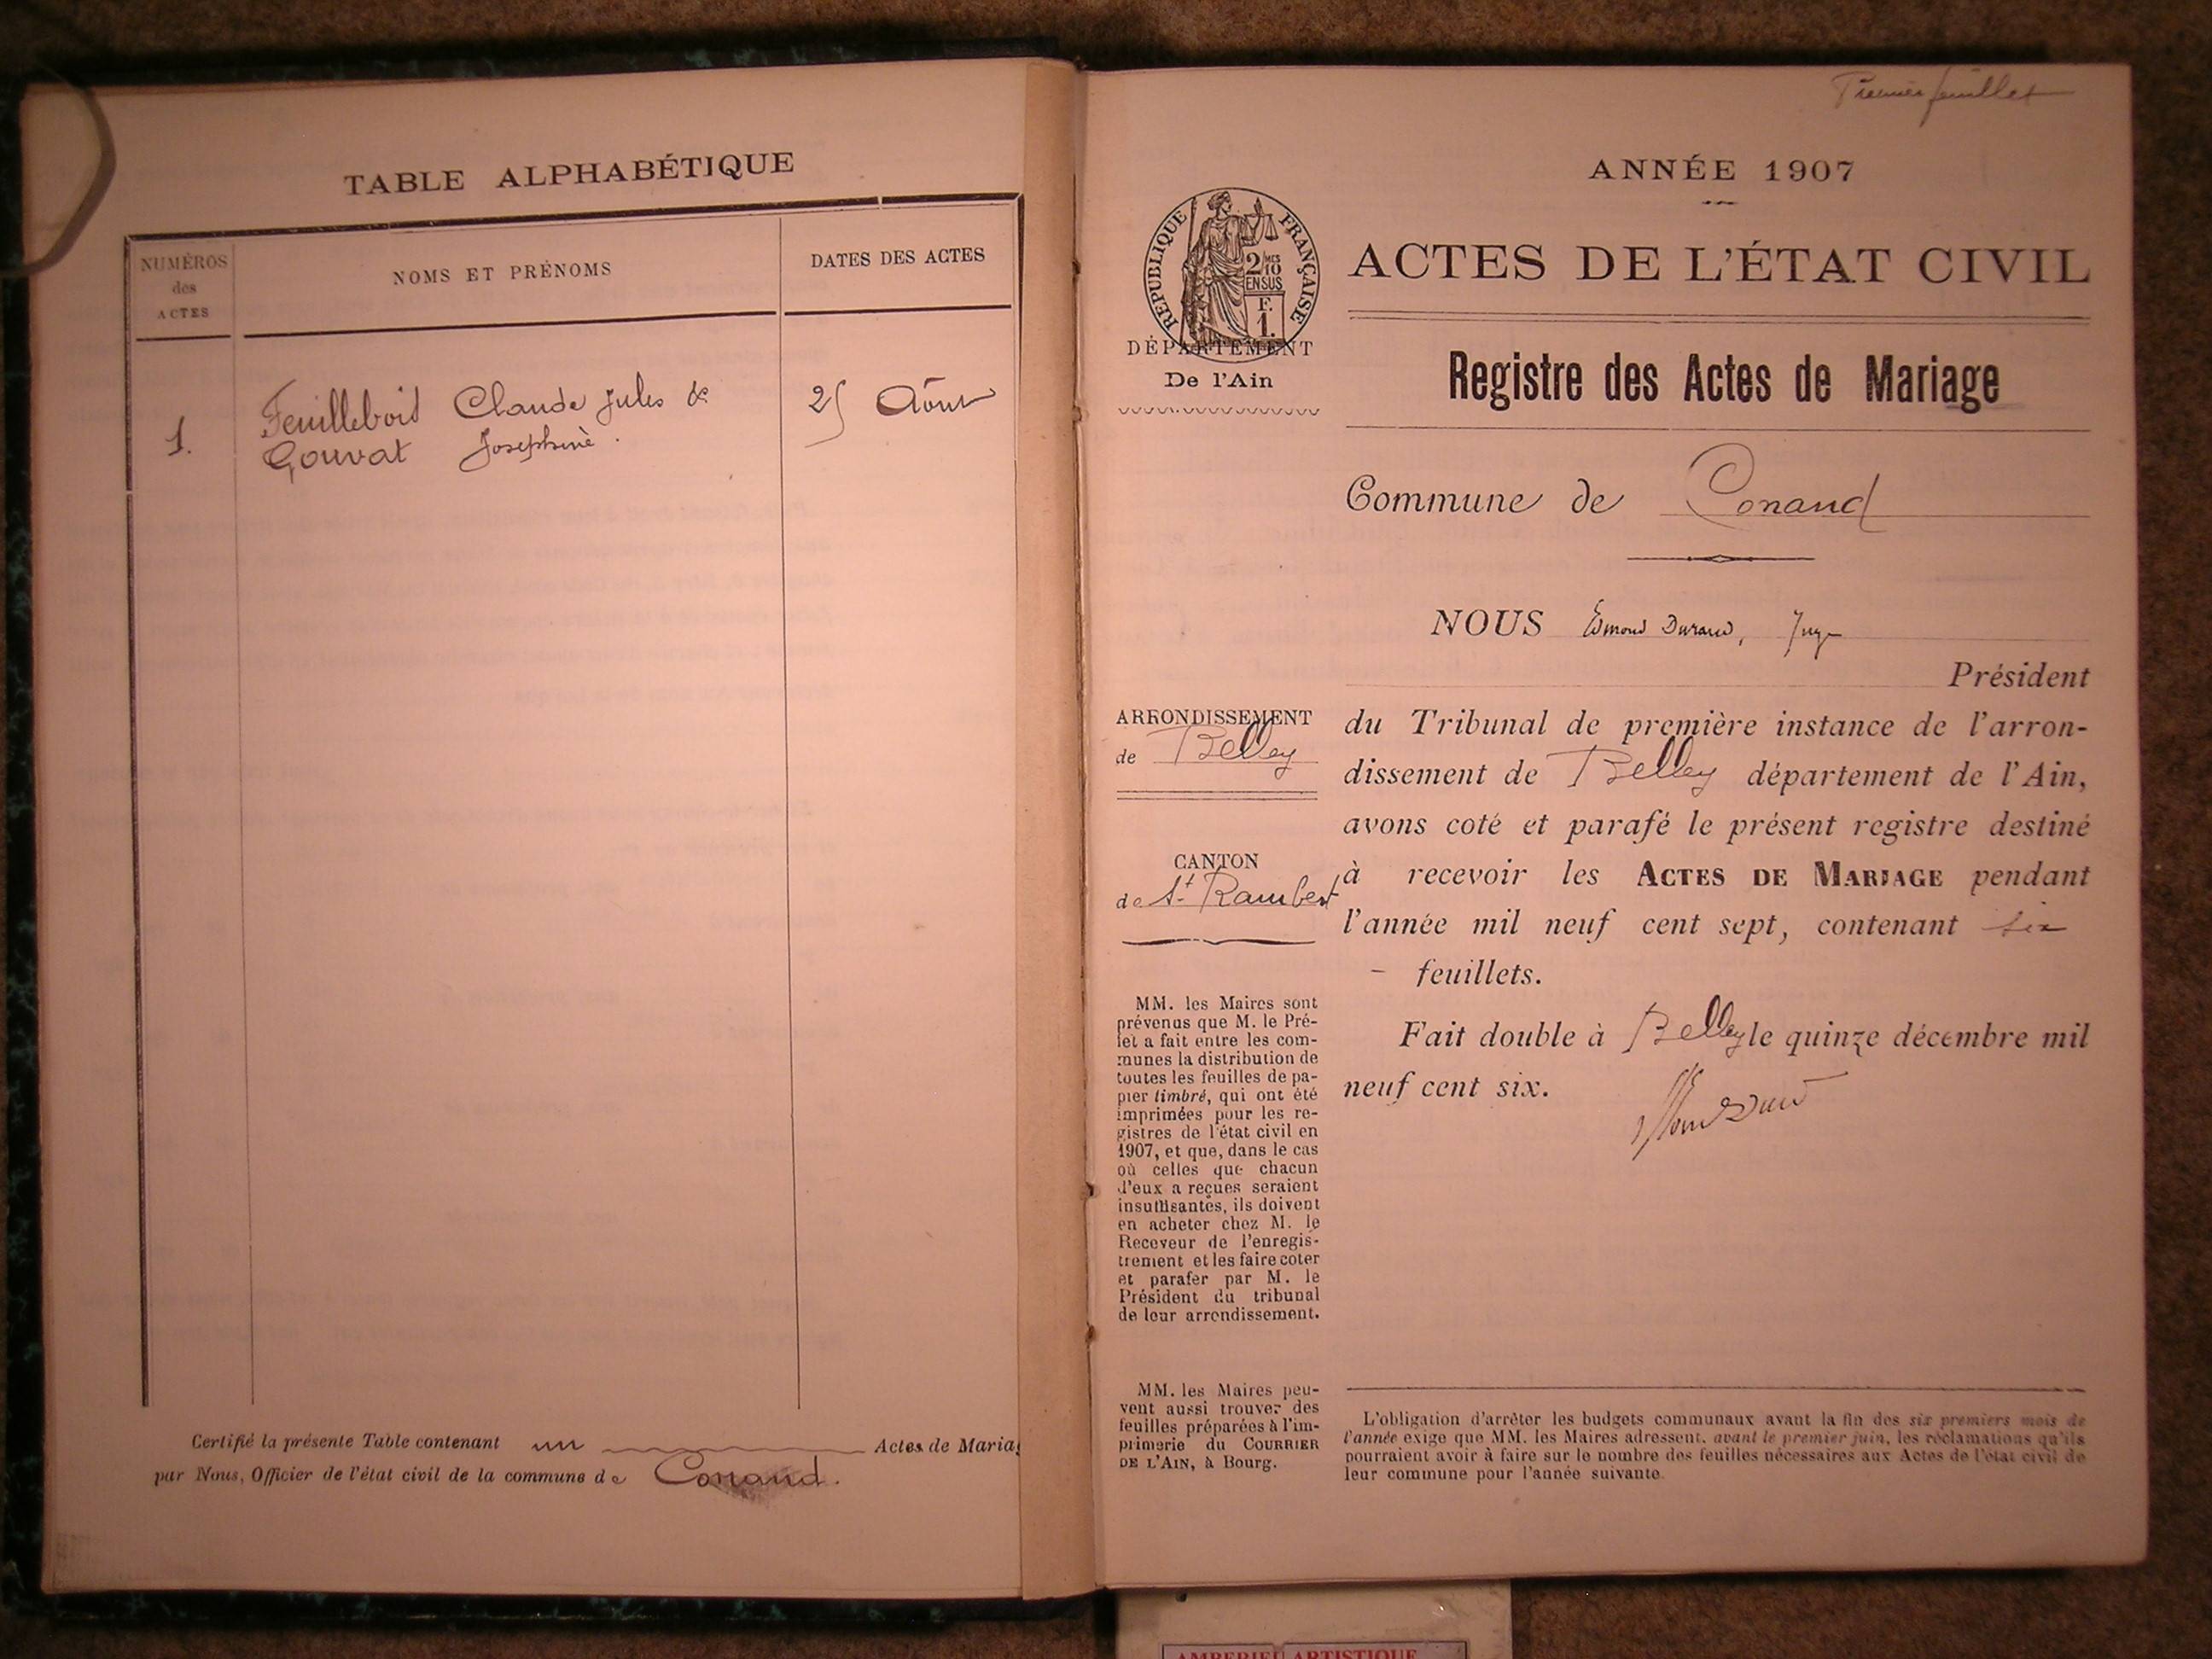 TABLE ALPHABÉTIQUE
NUMÉROS
des
ACTES
NOMS ET PRÉNOMS
DATES DES ACTES
1.
Feuillebois Claude Jules &
Gouvat Josephine.
25 Août
Certifié la présente Table contenant un Actes de Mariag
par Nous, Officier de l'état civil de la commune de Conand.
Premier feuillet
ANNÉE 1907
RÉPUBLIQUE FRANÇAISE
2/10 MES
EN SUS
F.
1.
ACTES DE L'ÉTAT CIVIL
DÉPARTEMENT
De l'Ain
Registre des Actes de Mariage
Commune de Conand
NOUS Edmond Durand, Juge
Président
ARRONDISSEMENT
de Belley
du Tribunal de première instance de l'arron-
dissement de Belley département de l'Ain,
avons coté et parafé le présent registre destiné
CANTON
de St. Rambert
à recevoir les ACTES DE MARIAGE pendant
l'année mil neuf cent sept, contenant six
- feuillets.
Fait double à Belley le quinze décembre mil
neuf cent six.
MM. les Maires sont
prévenus que M. le Pré-
fet a fait entre les com-
munes la distribution de
toutes les feuilles de pa-
pier timbré, qui ont été
imprimées pour les re-
gistres de l'état civil en
1907, et que, dans le cas
où celles que chacun
d'eux a reçues seraient
insuffisantes, ils doivent
en acheter chez M. le
Receveur de l'enregis-
trement et les faire coter
et parafer par M. le
Président du tribunal
de leur arrondissement.
MM. les Maires peu-
vent aussi trouver des
feuilles préparées à l'im-
primerie du COURRIER
DE L'AIN, à Bourg.
L'obligation d'arrêter les budgets communaux avant la fin des six premiers mois de
l'année exige que MM. les Maires adressent, avant le premier juin, les réclamations qu'ils
pourraient avoir à faire sur le nombre des feuilles nécessaires aux Actes de l'état civil de
leur commune pour l'année suivante.
AMBERIEU ARTISTIQUE